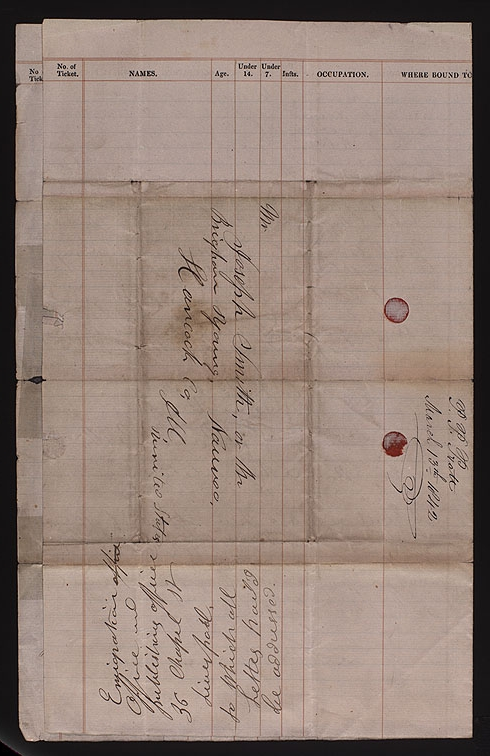 No
Tick
No. of Ticket.
NAMES.
Age.
Under 14.
Under 7.
Infts.
OCCUPATION.
WHERE BOUND TO
Mr.
Joseph Smith, or Mr
Brigham Young, Nauvoo,
Hancock Co, Ill
United States
March 13th 1842
Emigration office
Office and
publishing office
36 Chapel St
Liverpool
to which all
letters should
be addressed.